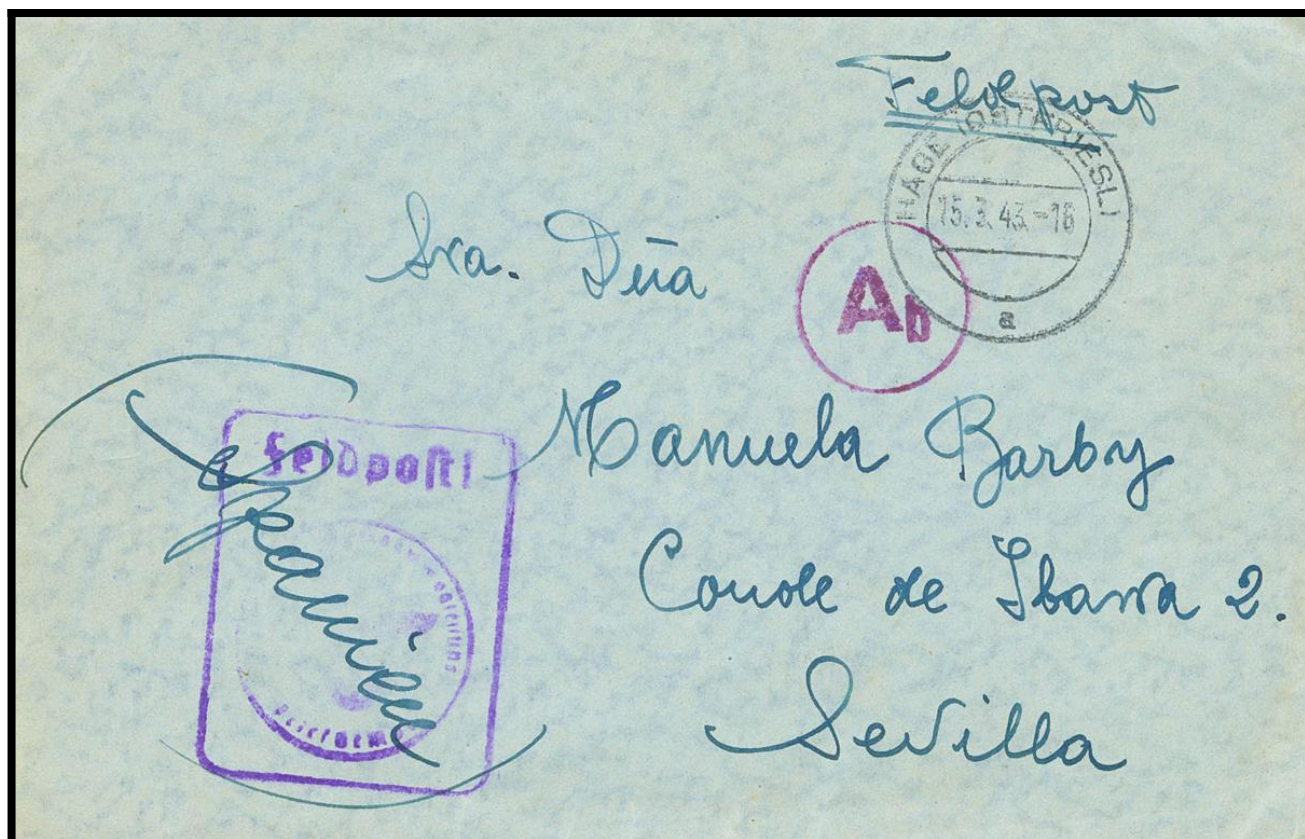 Feldpost
HAGE (OSTFRIESL)
15.3.43.-16
a
Sra. Dña
Ab
Manuela Barby
Conde de Ibarra 2.
Sevilla
Feldpost
Spanien